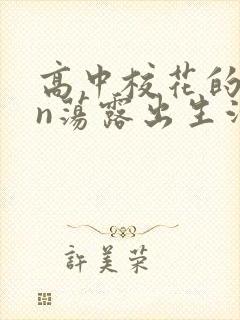 高中校花的
n蕩露出生
許美荣